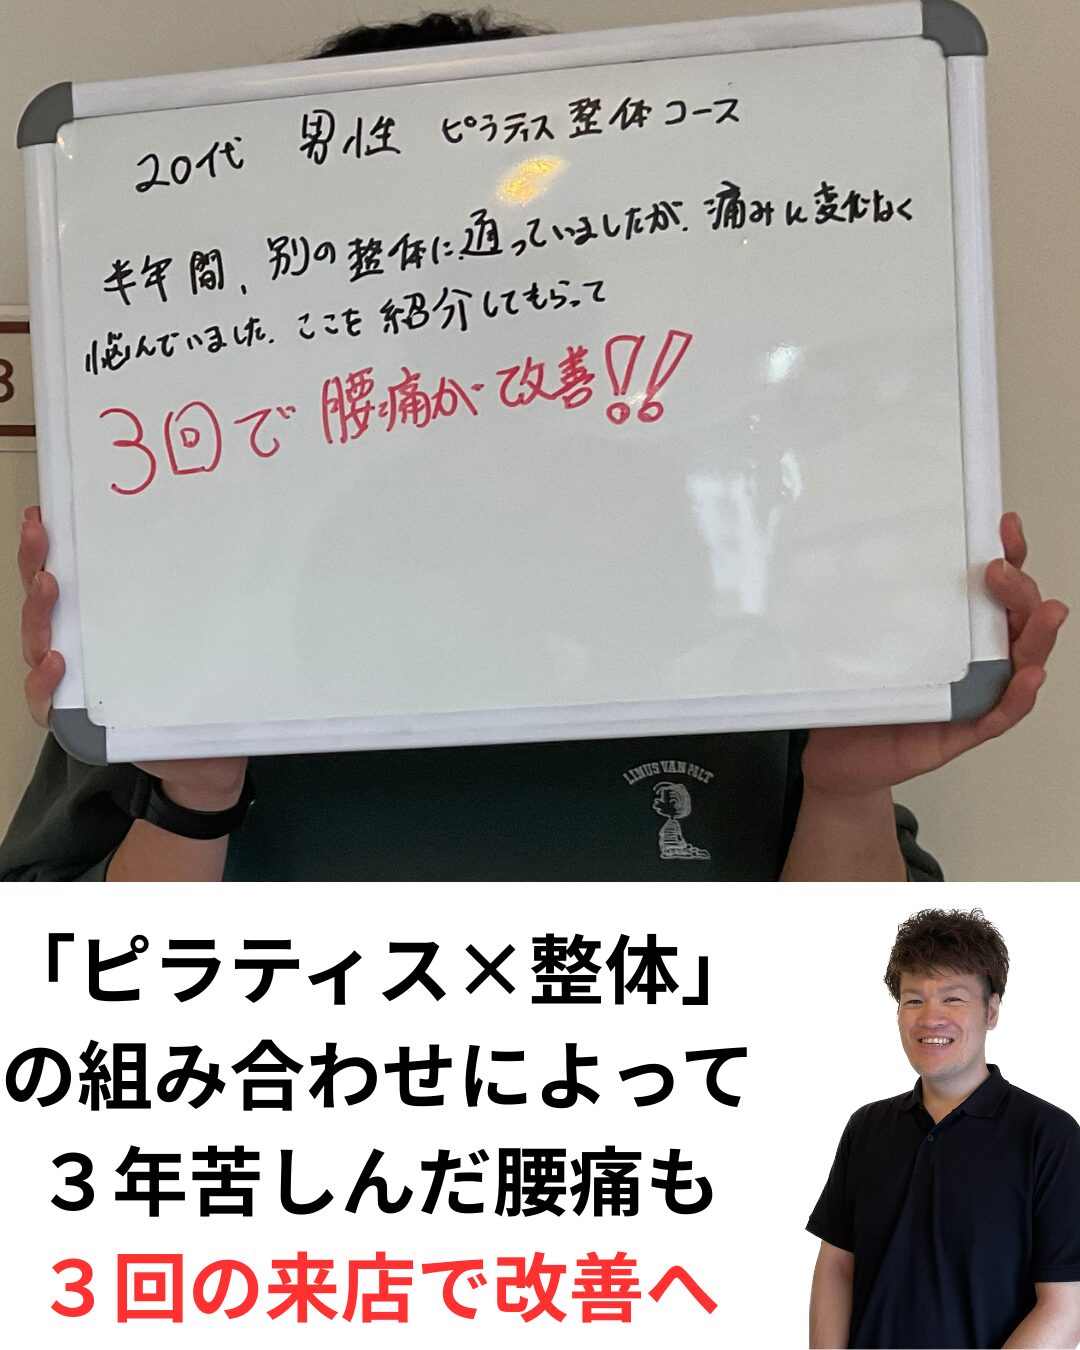 20代 男性 ピラティス整体コース
半年間、別の整体に通っていましたが、痛みに変化なく
悩んでいました。ここを紹介してもらって
3回で腰痛が改善!!
LINUS VAN PELT
「ピラティス×整体」
の組み合わせによって
３年苦しんだ腰痛も
３回の来店で改善へ